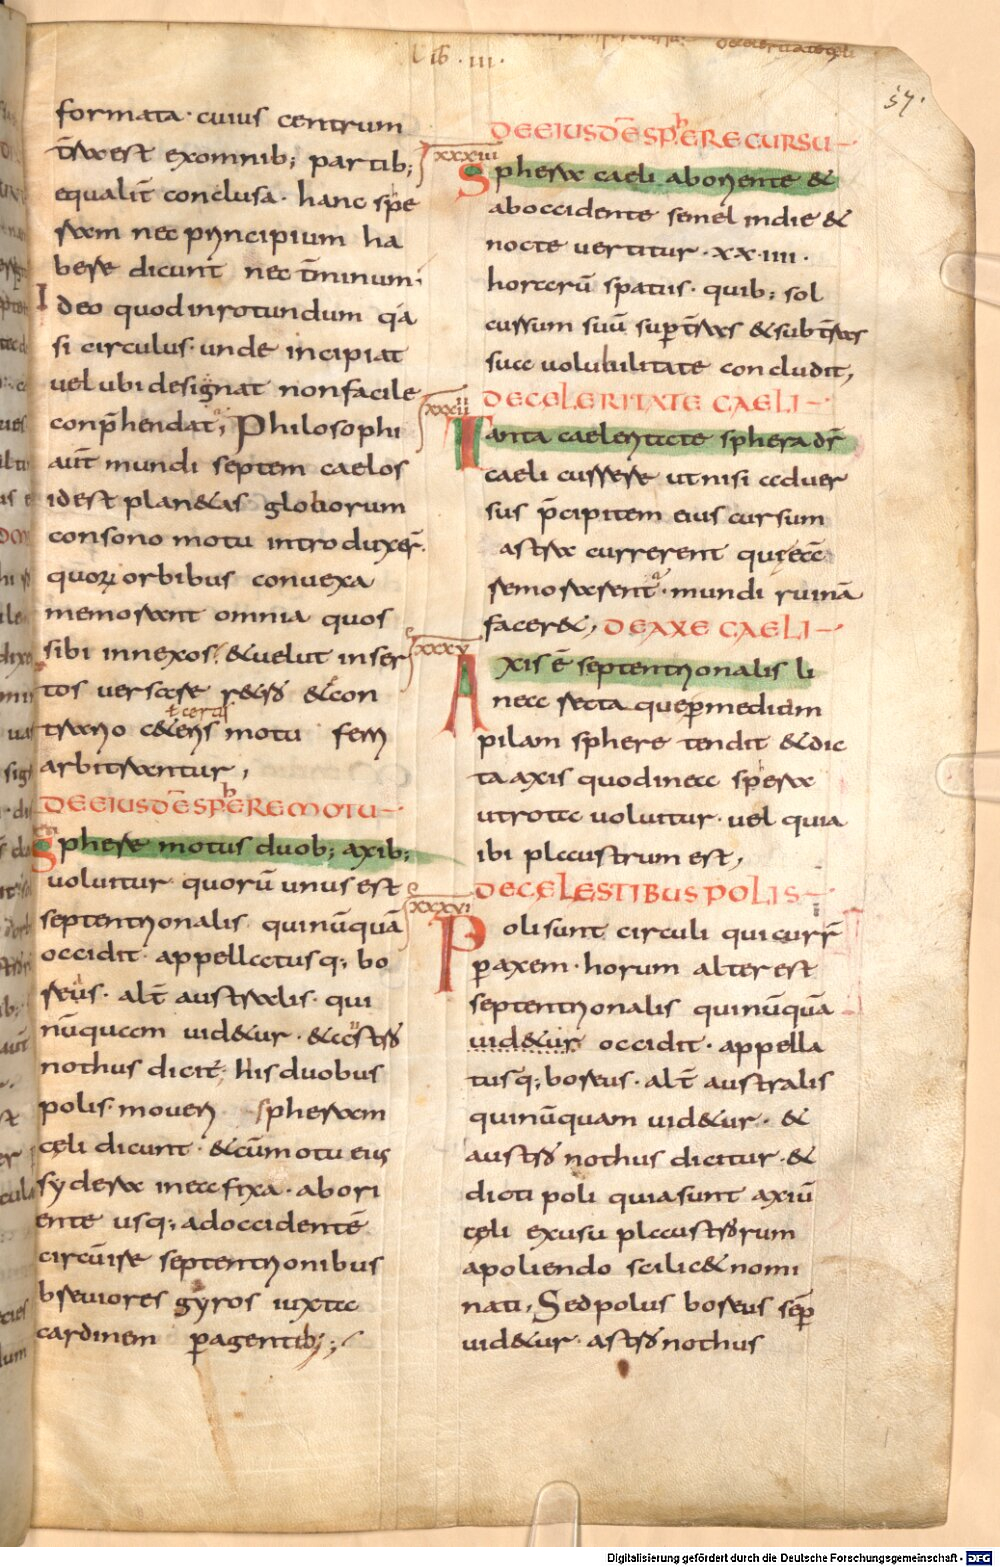 Lib · III ·
57.
formata · cuius centrum
t̄ra est exomnib; partib;
equalit̄ conclusa · hanc spe
ram nec principium ha
bere dicunt nec t̄minum·
Ideo quod inrotundum q́a
si circulus · unde incipiat
uel ubi designat non facile
conp̄hendat; Philosophi
aut̄ mundi septem caelos
id est plan&as globorum
consono motu introduxer̄.
quoꝝ orbibus conuexa
memorant omnia quos
sibi innexos · &uelut inser
tos uersare r&ro &con
trario c&eris motu ferri
arbitrantur;
DE EIUSDĒ SPERE MOTU
Sphere motus duob; axib;
uoluitur quorū unus est
septentrionalis qui nūquā
occidit · appellatusq; bo
reus · alt̄ australis · qui
nūquam uid&ur · &austro
nothus dicit̄ · His duobus
polis moueri spheram
cęli dicunt · &cū motu eius
sydera inea fixa · abori
ente usq; adoccidentē
circūire septentrionibus
breuiores gyros iuxta
cardinem ꝑagentib;
DE EIUSDĒ SPERE CURSU
XXXIII
Sphera caeli aboriente &
aboccidente semel indie &
nocte uertitur · XX · IIII ·
horarū spatiis · quib; sol
cursum suū suꝑ t̄ras &sub t̄ras
sua uolubilitate concludit;
DE CELERITATE CAELI
XXXIIII
Tanta caeleritate sphera dr̄
caeli currere ut nisi aduer
sus p̄cipitem eius cursum
astra currerent quęeā
remorarent · mundi ruinā
facer&; DE AXE CAELI
XXXV
Axis ē septentrionalis li
nea recta queꝑ mediam
pilam sphere tendit &dic
ta axis quod inea spera
ut rota uoluitur · uel quia
ibi plaustrum est;
DE CELESTIBUS POLIS
XXXVI
Poli sunt circuli qui curr̄
ꝑ axem · horum alter est
septentrionalis qui nūquā
uid&ur occidit · appella
tusq; boreus · alt̄ australis
qui nūquam uid&ur · &
austro nothus dicitur · &
dicti poli quia sunt axiū
cęli exusu plaustrorum
apoliendo scilic& nomi
nati; Sed polus boreus semꝑ
uid&ur · astro nothus
Digitalisierung gefördert durch die Deutsche Forschungsgemeinschaft - DFG